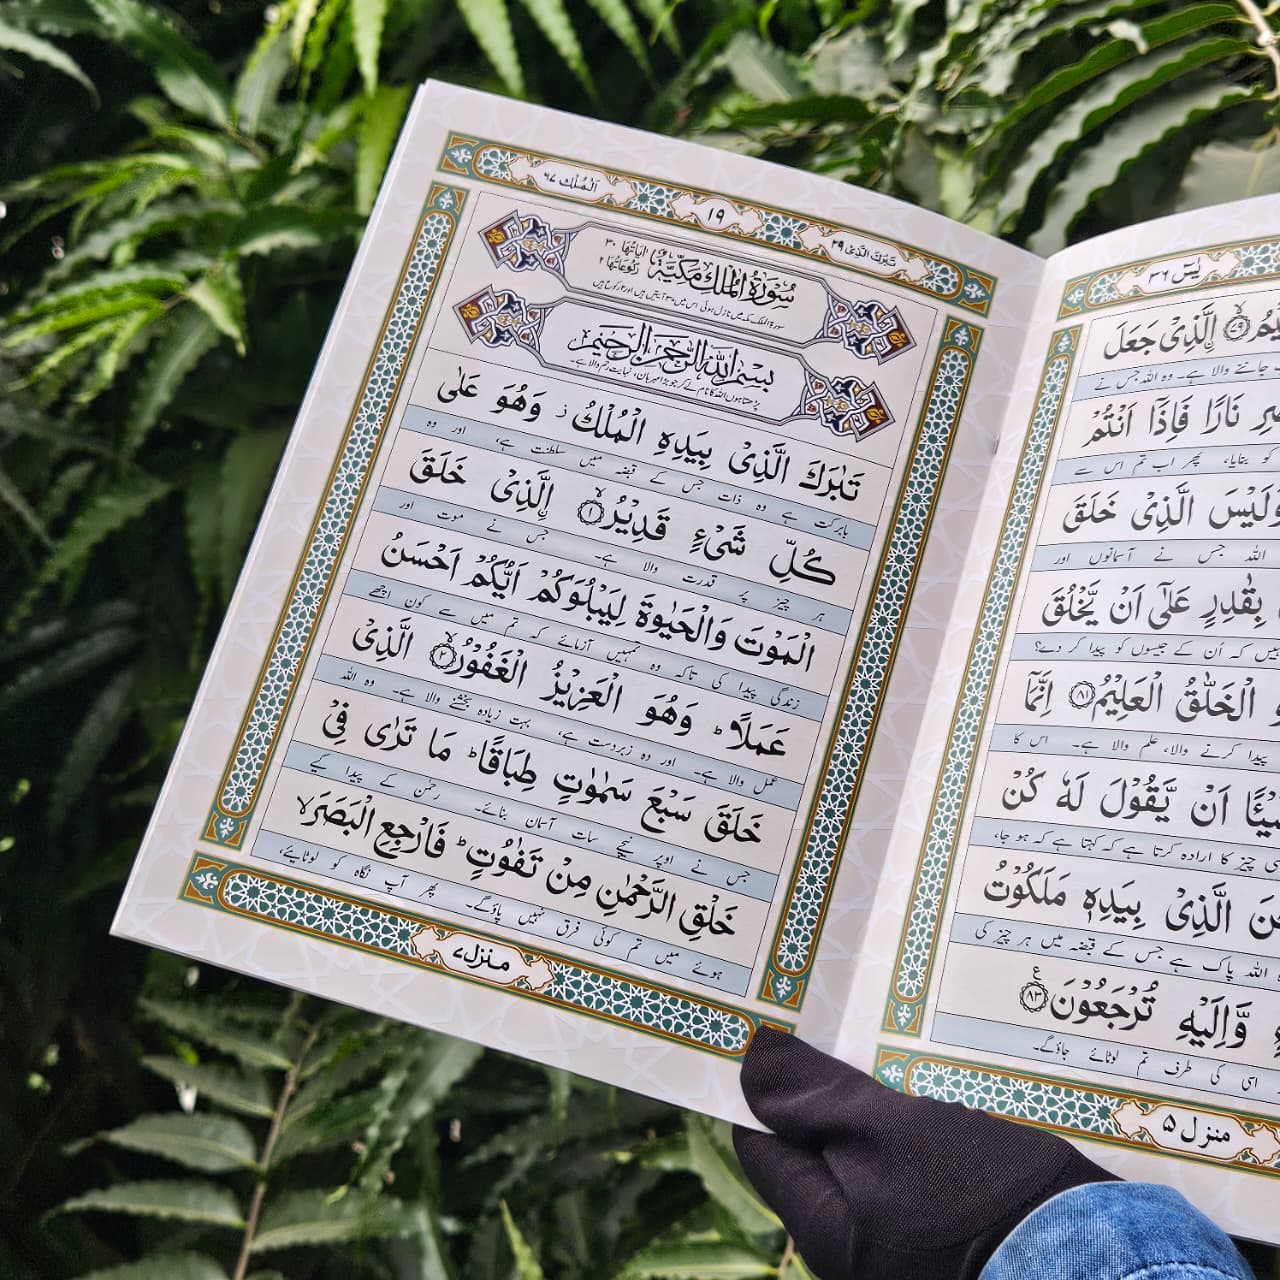 يٰسٓ ٣٦
اِۨلَّذِیْ جَعَلَ
جاننے والا ہے۔ وہ اللہ جس نے
نَارًا فَاِذَاۤ اَنْتُمْ
کو بنایا، پھر اب تم اس سے
الَّذِیْ خَلَقَ
اللہ جس نے آسمانوں اور
بِقٰدِرٍ عَلٰۤی اَنْ یَّخْلُقَ
کہ اُن کے جیسوں کو پیدا کر دے؟
الْخَلّٰقُ الْعَلِیْمُ ﴿٨١﴾ اِنَّمَاۤ
پیدا کرنے والا، علم والا ہے۔ اس کا
اَنْ یَّقُوْلَ لَهٗ كُنْ
چیز کا ارادہ کرتا ہے کہ کہتا ہے کہ ہو جا،
الَّذِیْ بِیَدِهٖ مَلَكُوْتُ
اللہ پاک ہے جس کے قبضہ میں ہر چیز کی
وَّاِلَیْهِ تُرْجَعُوْنَ ﴿٨٣﴾ ع
اسی کی طرف تم لوٹائے جاؤگے۔
منزل ۵
تَبٰرَكَ الَّذِیْ ٢٩
١٩
اَلْمُلْك ٦٧
سُوْرَةُ الْمُلْكِ مَكِّیَّةٌ اٰیَاتُهَا ٣٠ رُكُوْعَاتُهَا ٢
سورۃ الملک مکہ میں نازل ہوئی اس میں ۳۰ آیتیں ہیں اور ۲ رکوع ہیں
بِسْمِ اللّٰهِ الرَّحْمٰنِ الرَّحِیْمِ
پڑھتا ہوں اللہ کا نام لے کر جو بڑا مہربان، نہایت رحم والا ہے۔
تَبٰرَكَ الَّذِیْ بِیَدِهِ الْمُلْكُ ز وَهُوَ عَلٰی
بابرکت ہے وہ ذات جس کے قبضہ میں سلطنت ہے، اور وہ
كُلِّ شَیْءٍ قَدِیْرُ ۙ﴿١﴾ اِۨلَّذِیْ خَلَقَ
ہر چیز پر قدرت والا ہے۔ جس نے موت اور
الْمَوْتَ وَالْحَیٰوةَ لِیَبْلُوَكُمْ اَیُّكُمْ اَحْسَنُ
زندگی پیدا کی تاکہ وہ تمہیں آزمائے کہ تم میں سے کون اچھے
عَمَلًا ؕ وَهُوَ الْعَزِیْزُ الْغَفُوْرُ ۙ﴿٢﴾ الَّذِیْ
عمل والا ہے۔ اور وہ زبردست ہے، بہت زیادہ بخشنے والا ہے۔ وہ اللہ
خَلَقَ سَبْعَ سَمٰوٰتٍ طِبَاقًا ؕ مَا تَرٰی فِیْ
جس نے اوپر نیچے سات آسمان بنائے۔ رحمٰن کے پیدا کیے
خَلْقِ الرَّحْمٰنِ مِنْ تَفٰوُتٍ ؕ فَارْجِعِ الْبَصَرَ ۙ
ہوئے میں تم کوئی فرق نہیں پاؤگے۔ پھر آپ نگاہ کو لوٹائیے،
منزل ۷